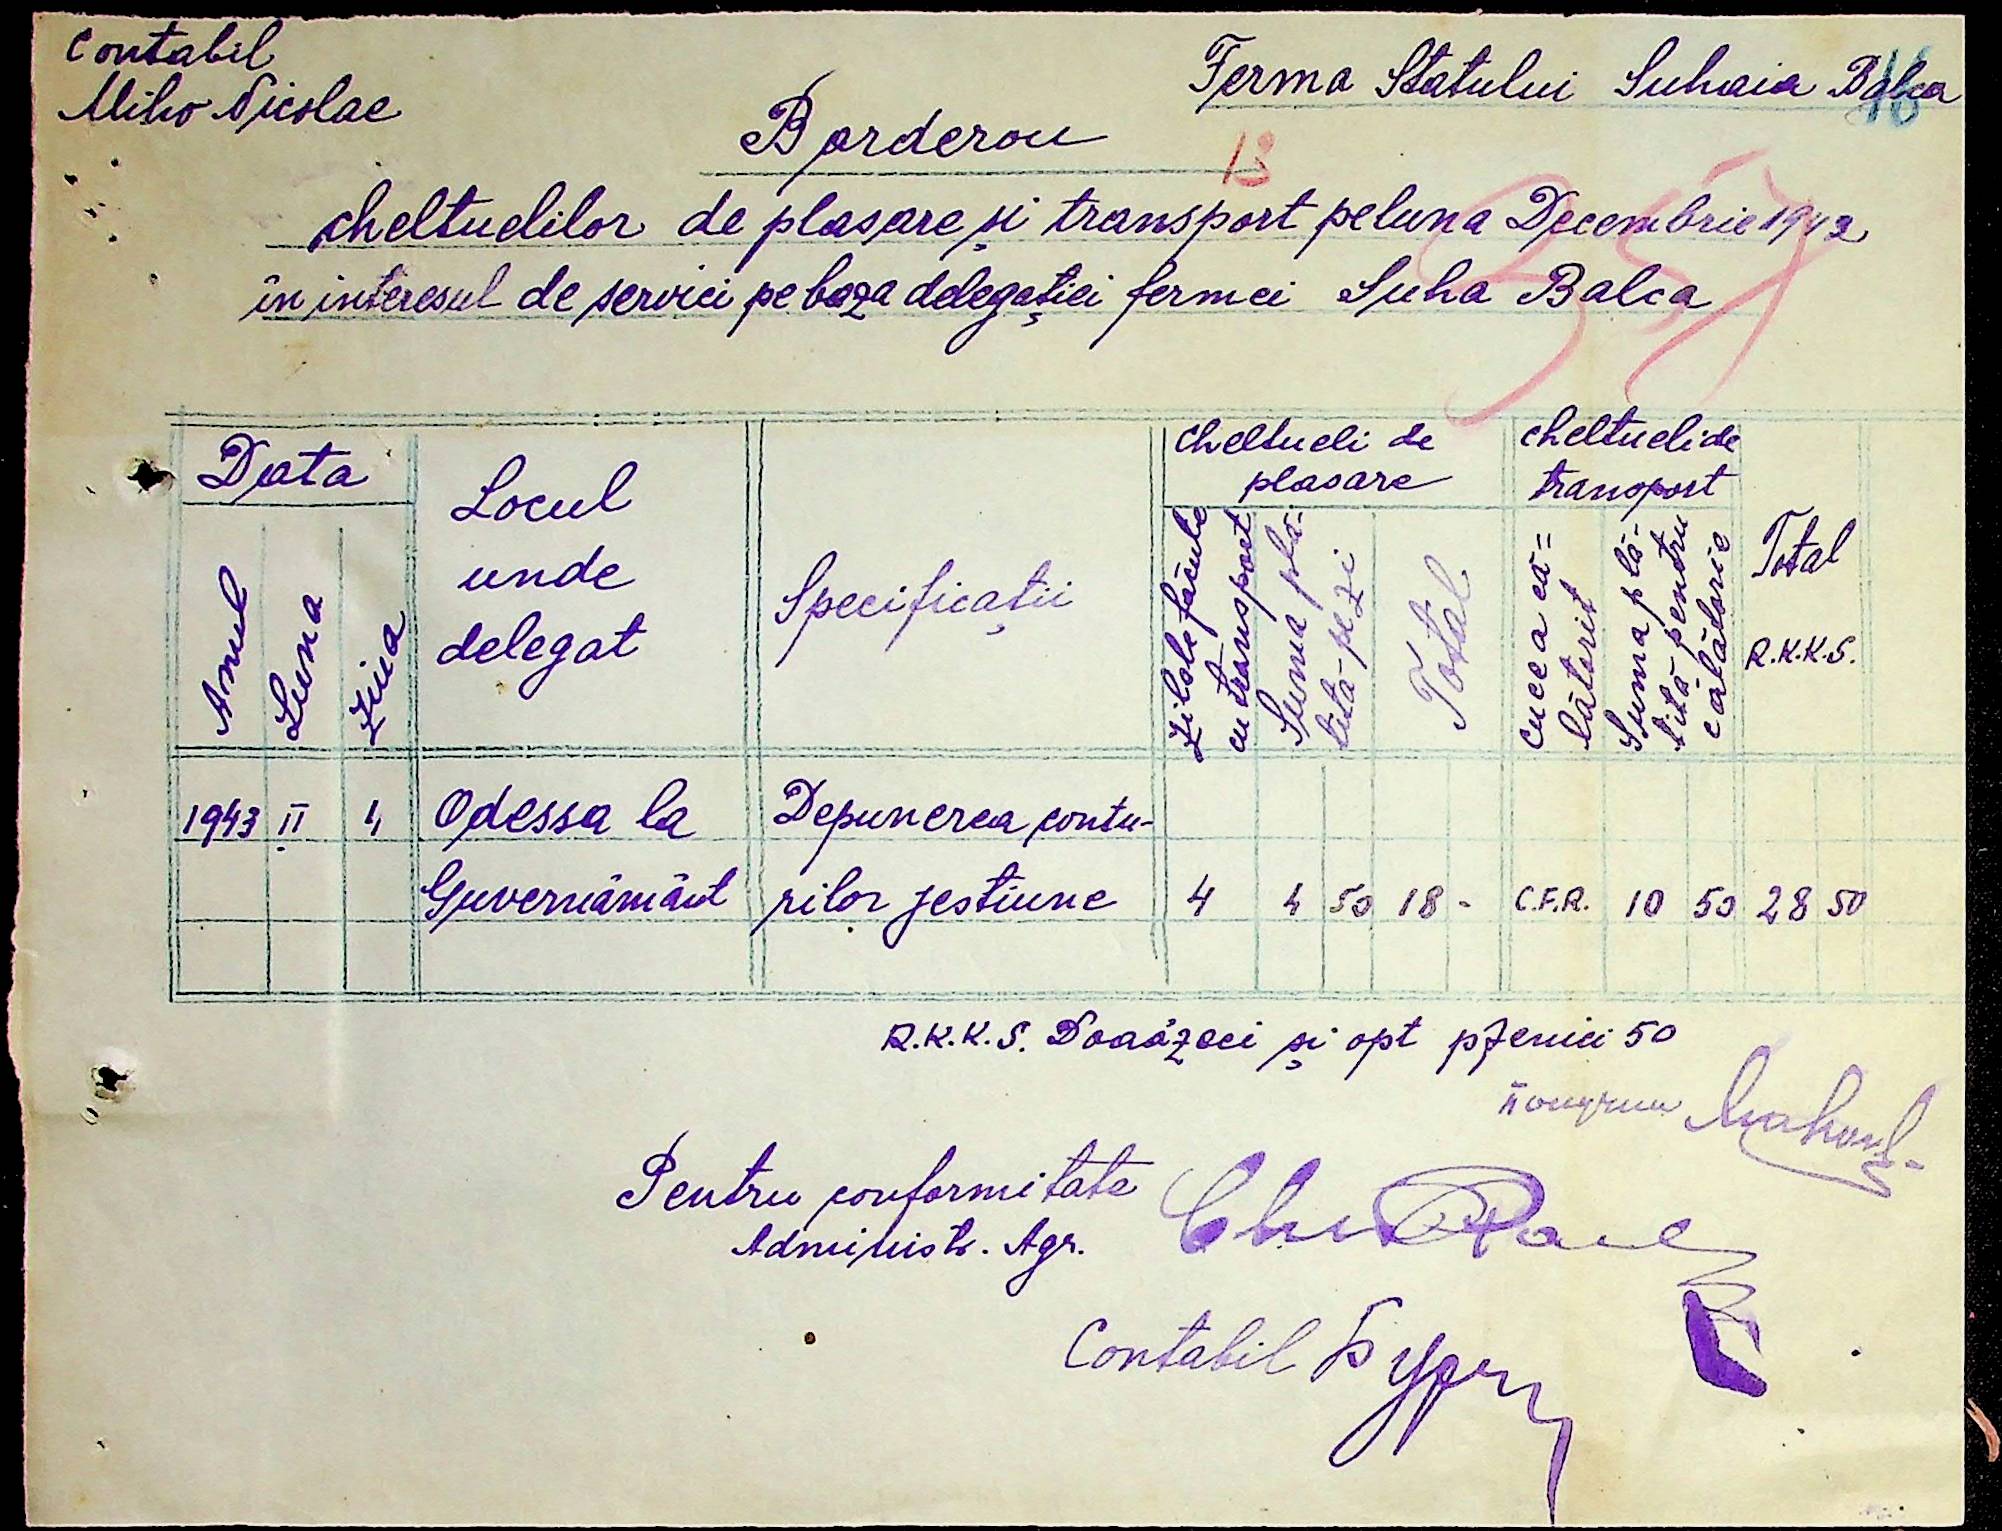 Contabil
Miho Nicolae
Ferma Statului Suhaia Balca
16
Borderou
13
cheltuelilor de plasare și transport pe luna Decembrie 1942
în interesul de servici pe baza delegației fermei Suha Balca
Data
Anul
Luna
Ziua
Locul
unde
delegat
Specificații
cheltueli de
plasare
Zilele făcute
cu transport
Suma plă-
tită pe zi
Total
cheltueli de
transport
cu ce a că=
lătorit
Suma plă-
tită pentru
călătorie
Total
R.K.K.S.
1943 II 4 Odessa la Depunerea contu-
Guvernământ rilor jestiune 4 4 50 18 - C.F.R. 10 50 28 50
R.K.K.S. Douăzeci și opt pfenici 50
Pentru conformitate
Administr. Agr.
Contabil